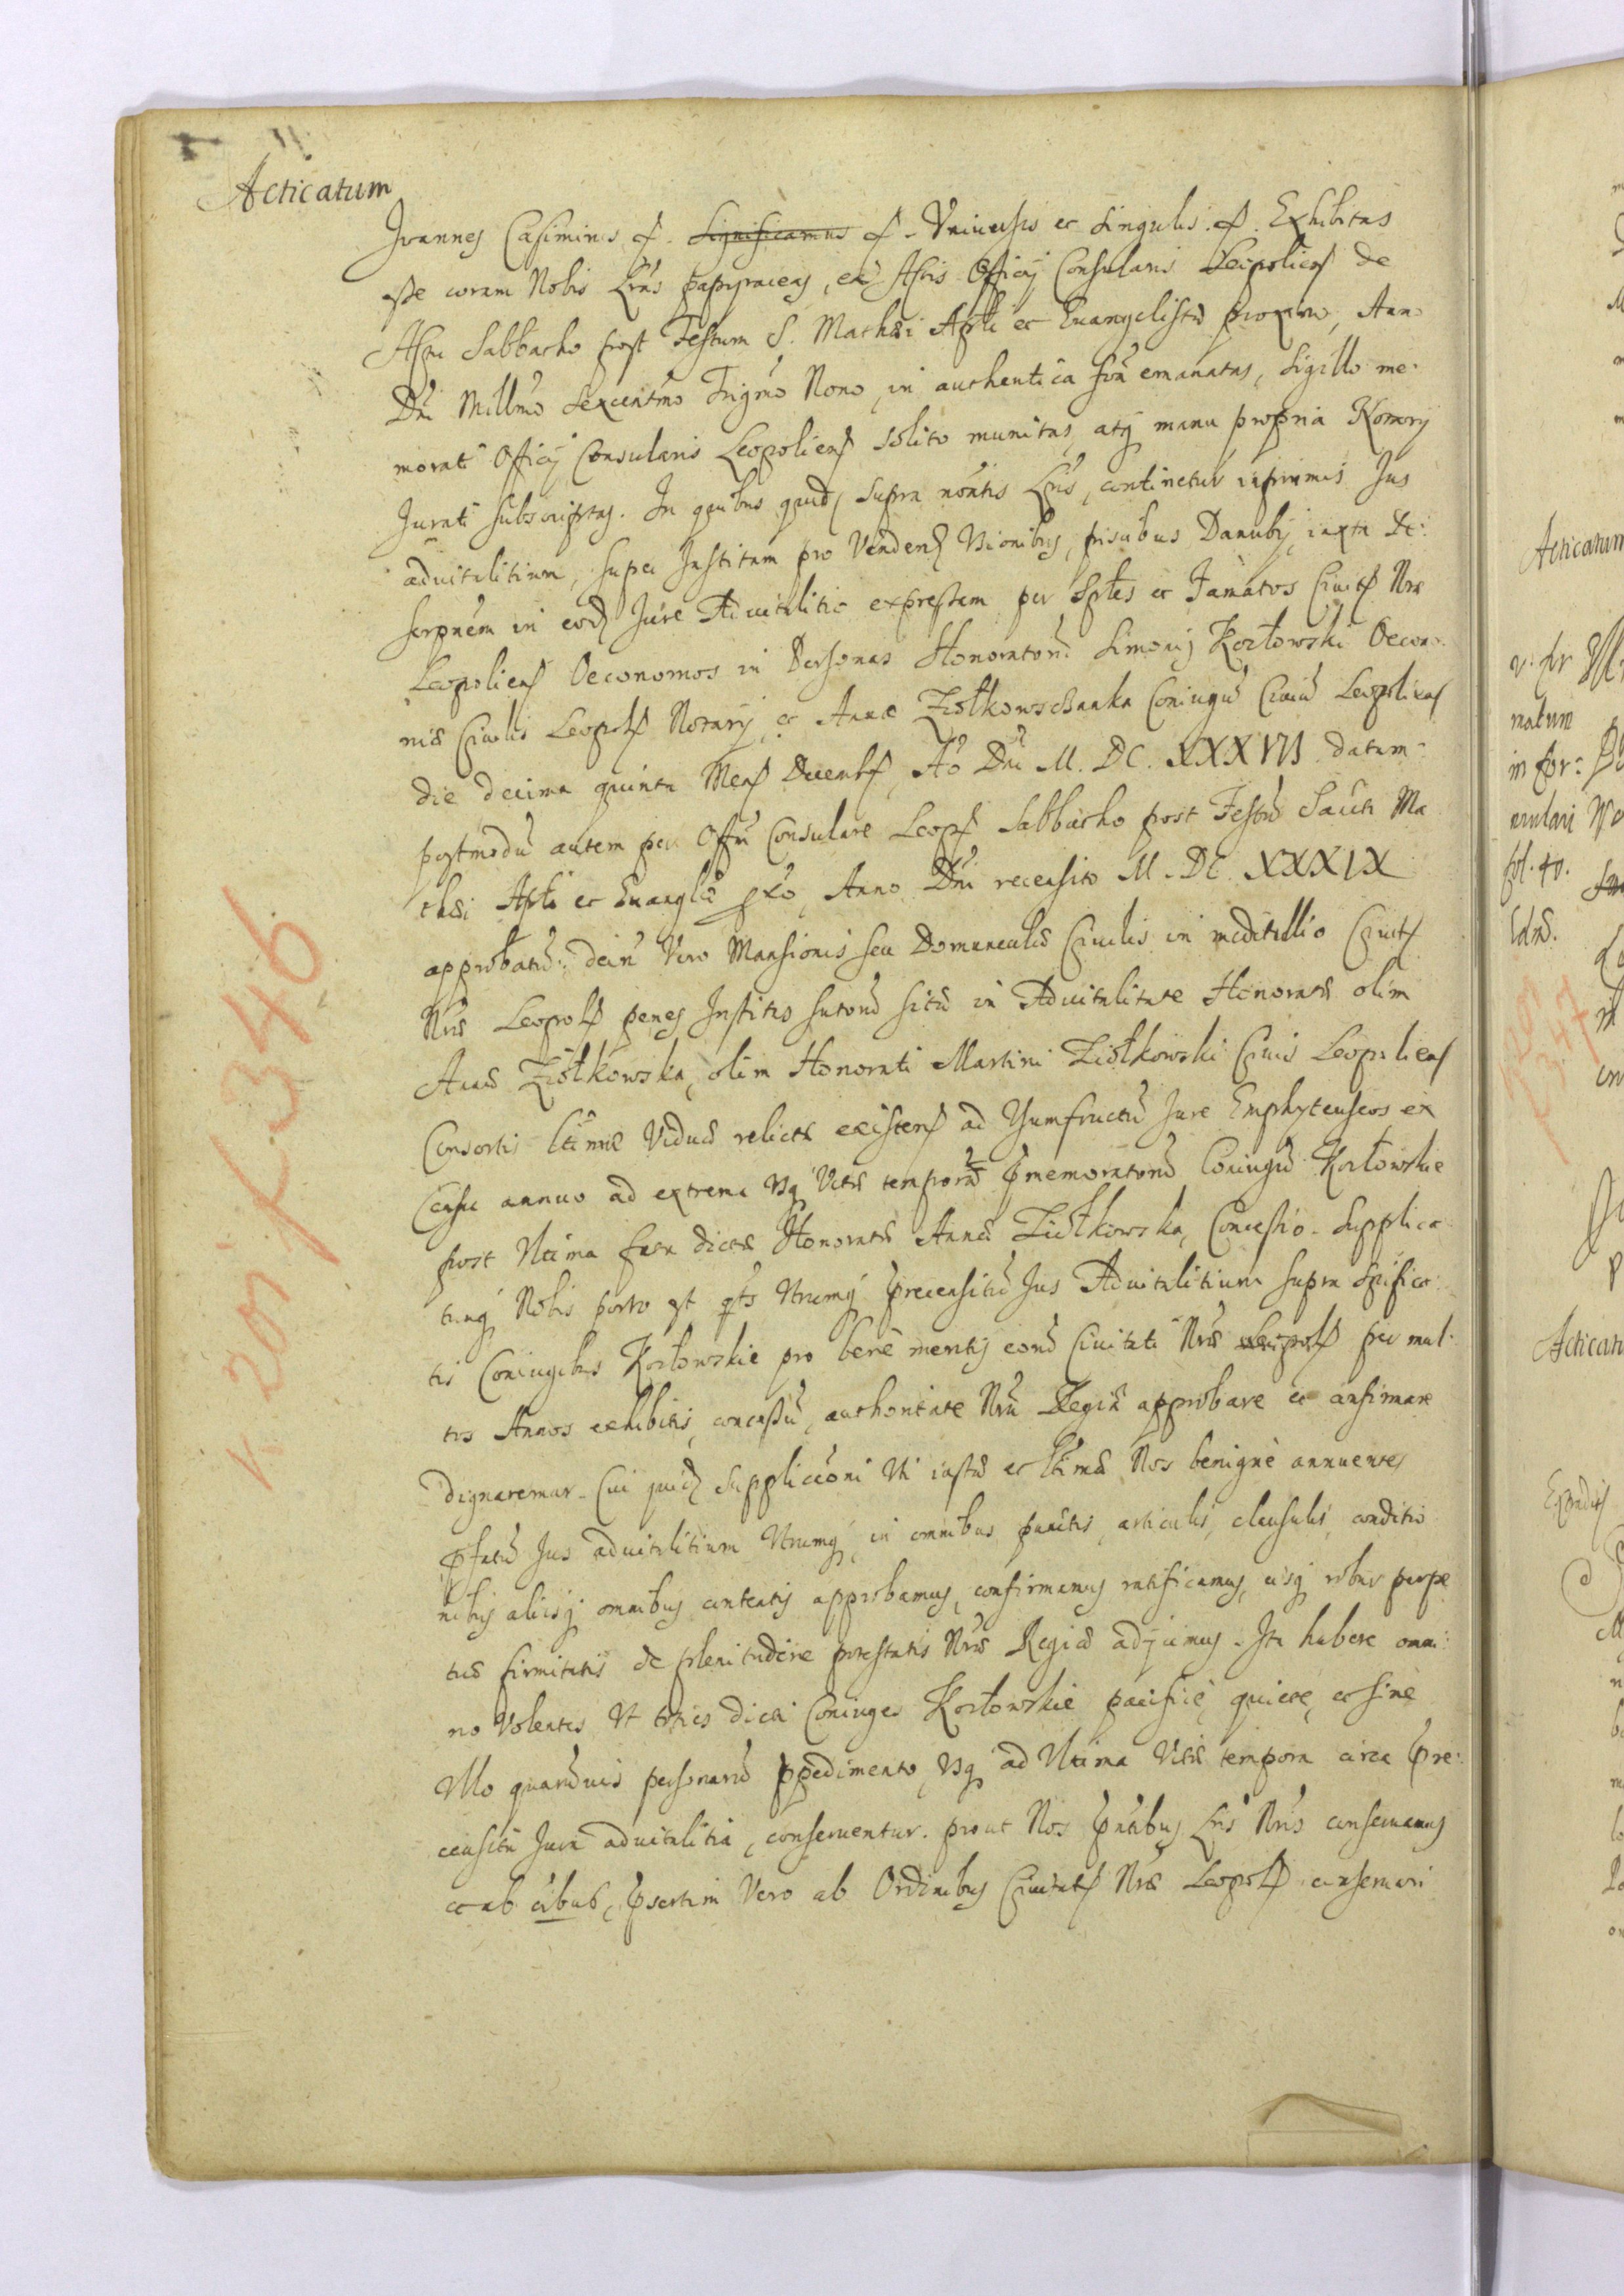 Acticatum
Joannes Casimirus etc. Significamus etc. Universis et singulis etc. Exhibitas
esse coram Nobis Lras papyraceas, ex Actis Officij Consularis Leopoliens de
Actu Sabbatho post Festum S. Mathæi Apli et Euangelistæ proximo, Anno
Dni Millmo Sexcentmo Trigmo Nono, in authentica for emanatas, sigillo me-
morati Officij Consularis Leopoliens solito munitas, atq manu propria Notarij
Jurati subscriptas. In quibus quid supra notis Lris, continetur inprimis Jus
aduitalitium, super Institam pro Vendend piscibus Danubij, iuxta de-
scrpnem in eod Jure Aduitalitio expressam per Sptes et Famatos Ciuits Nræ
Leopoliens Oeconomos in Personas Honoratorũ Simonis Kozłowski Oecono-
miæ Ciuilis Leopols Notarij, et Annæ Ziołkowschanka Coniugũ Ciuiũ Leopoliens
die decima quinta Mens Decembs, Ao Dni M. DC. XXXVII datum:
postmodũ autem per Offm Consulare Leops Sabbatho post Festũ Sancti Ma
thæi Apli et Euanglæ pxo, Anno Dni recensito M. DC. XXXIX
approbatũ: dein Vero Mansionis seu Domunculæ Ciuilis in meditullio Ciuits
Nræ Leopols penes Institas sutorũ sitæ in Aduitalitate Honoratæ olim
Annæ Ziołkowska, olim Honorati Martini Ziołkowski Ciuis Leopoliens
Consortis ltimæ Viduæ relictæ existens ad Vsumfructũ Jure Emphyteuseos ex
Censu annuo ad extrema Vsq Vitæ tempora pmemoratorũ Coniugũ Kozłowskie
post Vltima fata dictæ Honoratæ Annæ Ziołkowska, Concessio. Supplica-
tumq Nobis porro est qts Vtrumq precensitũ Jus Aduitalitium supra spifica-
tis Coniugibus Kozłowskie pro bene meritis eorũ Ciuitati Nræ Leopols per mul-
tos Annos exhibitis, concessũ, authoritate Nra Regia approbare et confirmare
dignaremur. Cui quid supplicaoni Vti iustæ et ltimæ Nos benignè annuentes
pfatũ Jus aduitalitium Vtrumq, in omnibus punctis, articulis, clausulis, conditio
nibus alijsq omnibus contentis approbamus, confirmamus ratificamus, eisq robur perpe
tuæ firmitatis de plenitudine potestatis Nræ Regiæ adijcimus. Ita habere omni-
no Volentes Vt toties dicti Coniuges Kozłowskie pacificè, quietè, et sine
Vllo quarũuis personarũ ppedimento, Vsq ad Vltima Vitæ tempora circa pre-
censita Jura aduitalitia, conseruentur. prout Nos pntibus Lris Nris conseruamus
et ab oibus, psertim Vero ab Ordinibus Ciuitats Nræ Leopols conseruari
k 201 f 346
Acticatum
natum
in for:
fol. 40.
347